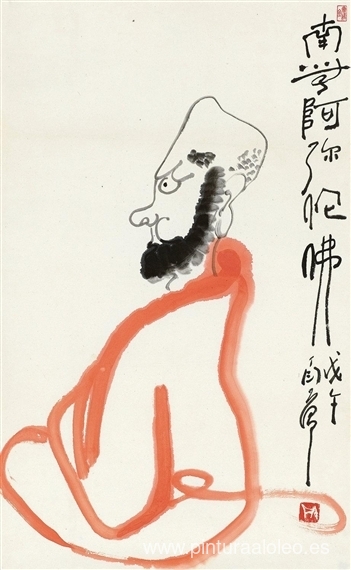 南無阿弥陀佛
戊午
www.pinturaaloleo.es